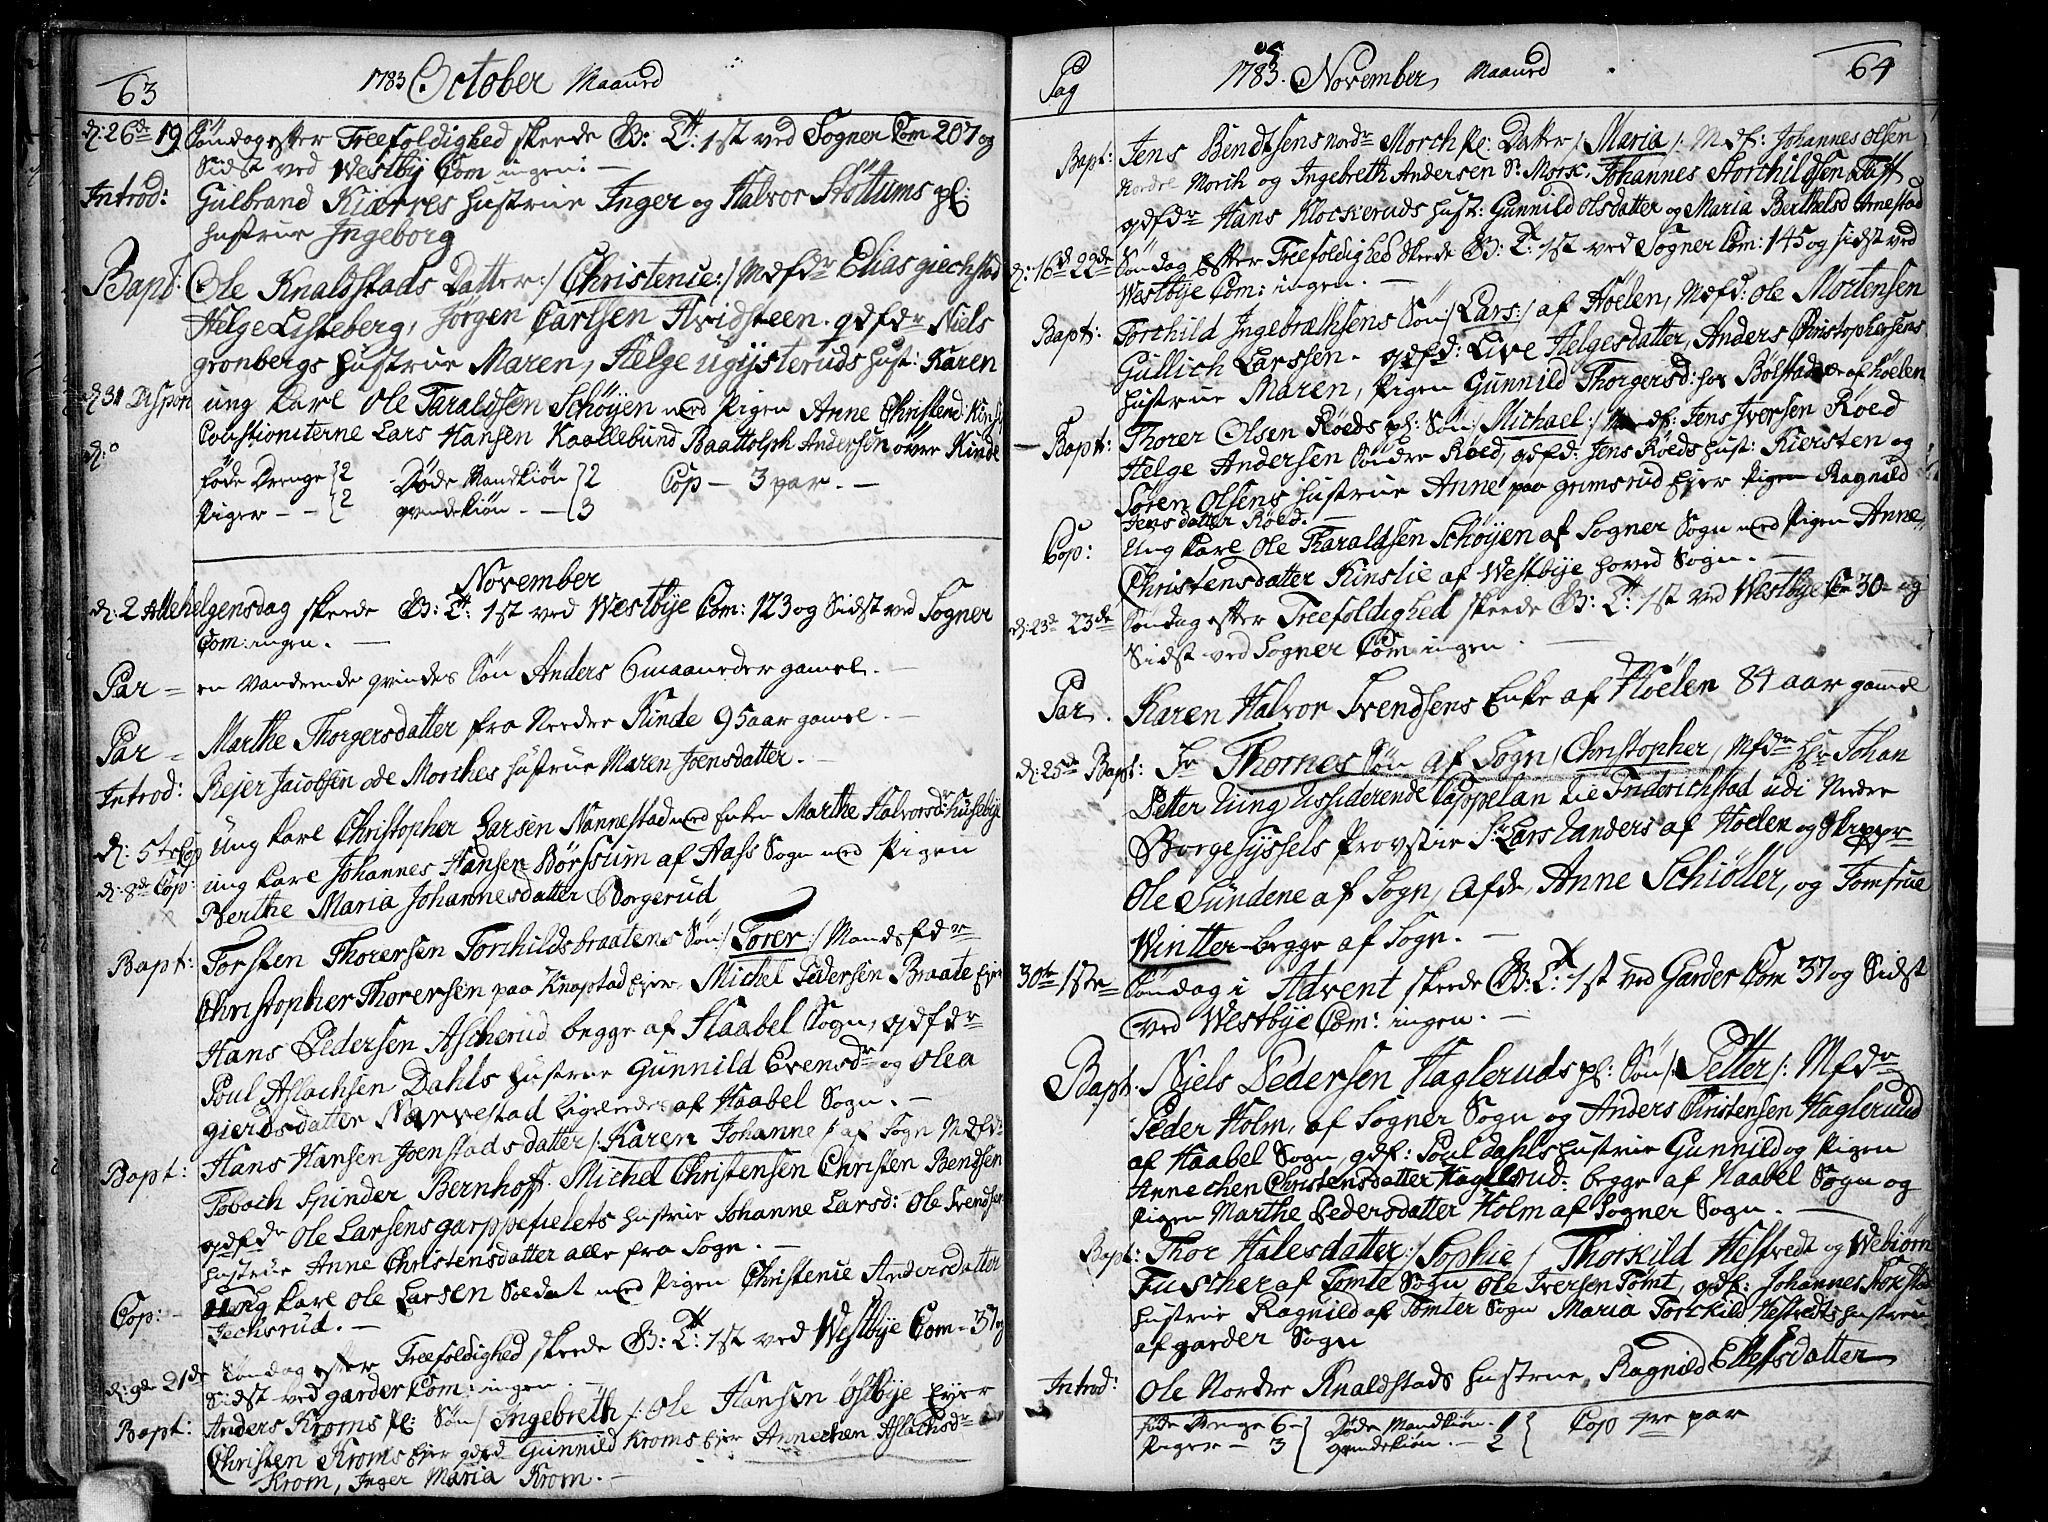 63
1783 October Maaned
d: 26de 19 Søndag efter Treefoldighed skeede G: T: 1st ved Sogner Com 207 og
Sidst ved Westby Com ingen: —
Introd: Gulbrand Kiærres hustrue Inger og Halvor Støttums pl:
hustrue Ingeborg
Bapt: Ole Knaldstads Datter :/ Christence :/ Mdfdr Elias giechstad
Helge Listeberg, Jørgen Carlsen Hvidsteen. qdfdr Niels
gronbergs hustrue Maren, Helge ugysteruds hust: Karen
d: 31 Dispen ung karl Ole Taraldsen Schøyen med Pigen Anne Christend:
d:o Coustioniterne Lars Hansen Kaallebund Baattolph Andersen øvre Kinde
føde Drenge } 2 Døde Mandkiøn } 2 Cop — 3 par. —
Piger — — } 2 qvindekiøn. — } 3
November
d: 2 Allehelgensdag skeede G: T: 1st ved Westbye Com: 123 og Sidst ved Sogner
Com: ingen. —
Par = en Vandrende qvindes Søn Anders 6 maaneder gamel. —
Par = Marthe Thorgersdatter fra Nerdre Kinde 95 aar gamel. —
Introd: Rejer Jacobsen Morches hustrue Maren Joensdatter. —
d: 5te Cop ung karl Christopher Larsen Nannestad med Enken Marthe Halvorsdr Huusebye
d: 8de Cop: ung karl Johannes Hansen Børssum af Aass Sogn med Pigen
Berthe Maria Johannesdatter Borgerud
Bapt: Torsten Thorersen Torchildsbraatens Søn :/ Torer :/ Mandsfdr
Christopher Thorersen paa Knapstad Ejer, Michel Pedersen Braate Ejer
Hans Pedersen Ascherud begge af Haabel Sogn, qdfdr
Poul Aslachsen Dahls hustrue Gunnild Evensdr og olea
gierdsdatter Narvestad Ligeledes af Haabel Sogn. —
Bapt: Hans Hansen Joenstads datter /: Karen Johanne :/ af Sogn Mdfdr
Tobach Spinder Bernhoft. Michel Christensen Christen Bendsen
qdfdr Ole Larsens garppefielets hustrue Johanne Larsd: Ole Svendsen
hustrue Anne Christensdatter alle fra Sogn. —
Cop: — ung karl Ole Larsen Soldat med Pigen Christence Andersdatter
Jechsrud. —
d: 9de 21de Søndag efter Treefoldighed skeede G: T: 1st ved Westbye Com = 37 og
Sidst ved garder Com: ingen. —
Bapt: Anders Kroms pl: Søn / Ingebreth /: Ole Hansen østbye Ejer
Christen Kroms Ejer qdfd Gunnild Kroms Ejer Annechen Aslachsdr
Krom, Inger Maria Krom. —
Pag 1783. November Maaned 64
Bapt: Jens Bendtsens nordr Morch pl: Datter / Maria /: Mdf: Johannes olsen
Nordre Morch og Ingebreth Andersen Sr Morc, Johannes Storchildsen Taff
qdfdr Hans Klockeruds hust: Gunnild olsdatter og Maria Berthelsd Arnestad
d: 16d 22de Søndag Efter Treefoldighed Skeede G: T: 1st ved Sogner Com: 145 og sidst ved
Westbye Com: ingen. —
Bapt: Torchild Ingebrethsens Søn / Lars :/ af Høelen, Mdfd: Ole Mortensen
Gullich Larssen. qdfd: Live Helgesdatter, Anders Christophersens
hustrue Maren, Pigen Gunnild Thorgersd: hos Bølstad af Høelen
— Bapt: Thorer Olsen Røeds pl: Søn :/ Michael :/ Mdf: Jens Iversen Røed
Helge Andersen Søndre Røed, qdfd: Jens Røeds hust: Kiersten og
Søren Olsens hustrue Anne paa Grimsrud Ejer Pigen Ragnild
Jensdatter Røed. —
Cop: Ung karl Ole Tharaldsen Schøyen af Sogner Sogn med Pigen Anne
Christensdatter Kinslie af Westbye hoved Sogn. —
d: 23d 23de Søndag efter Treefoldighed skeede G: T: 1st ved Westbye Com 30 og
Sidst ved Sogner Com ingen —
Par. Karen Halvor Svendsens Enke af Høelen 84 aar gamel
d: 25de Bapt: Sr Thornes Søn af Sogn / Christopher / Mfdr Hr Johan
Petter Ting Residerende Cappelan til Friderichstad udi Nedre
Borgesyssels Provstie Sr Lars Zanders af Høelen og Skipper
Ole Sundene af Sogn, Qfdr, Anne Schiøller, og Jomfrue
Wintter begge af Sogn. —
30te 1ste Søndag i Advent skeede G: T: 1st ved Garder Com 37 og Sidst
ved Westbye Com: ingen. —
Bapt. Niels Pedersen Haglerudspl: Søn /: Petter /: Mfdr
Peder Holm, af Sogner Sogn og Anders Christensen Haglerud
af Haabel Sogn, qdf: Poul dahls hustrue Gunnild og Pigen
Annechen Christensdatter Haglerud: begge af Haabel Sogn og
Pigen Marthe Pedersdatter Holm af Sogner Sogn. —
Bapt: Thor Hales datter :/ Sophie / Thorkild Hestvedt og Webiørn
Fuscher af Tomte Sogn Ole Iversen Tømt, qdf: Johannes
hustrue Ragnild af Tomter Sogn Maria Torckild Hestvedts hustrue
af garder Sogn
Introd: Ole Nordre Knaldstads hustrue Ragnild Ellefsdatter
føde Drenge 6 — } Døde Mandkiøn. 1 } Cop 1re par
Piger — 3 } qvindekiøn. — 2 }